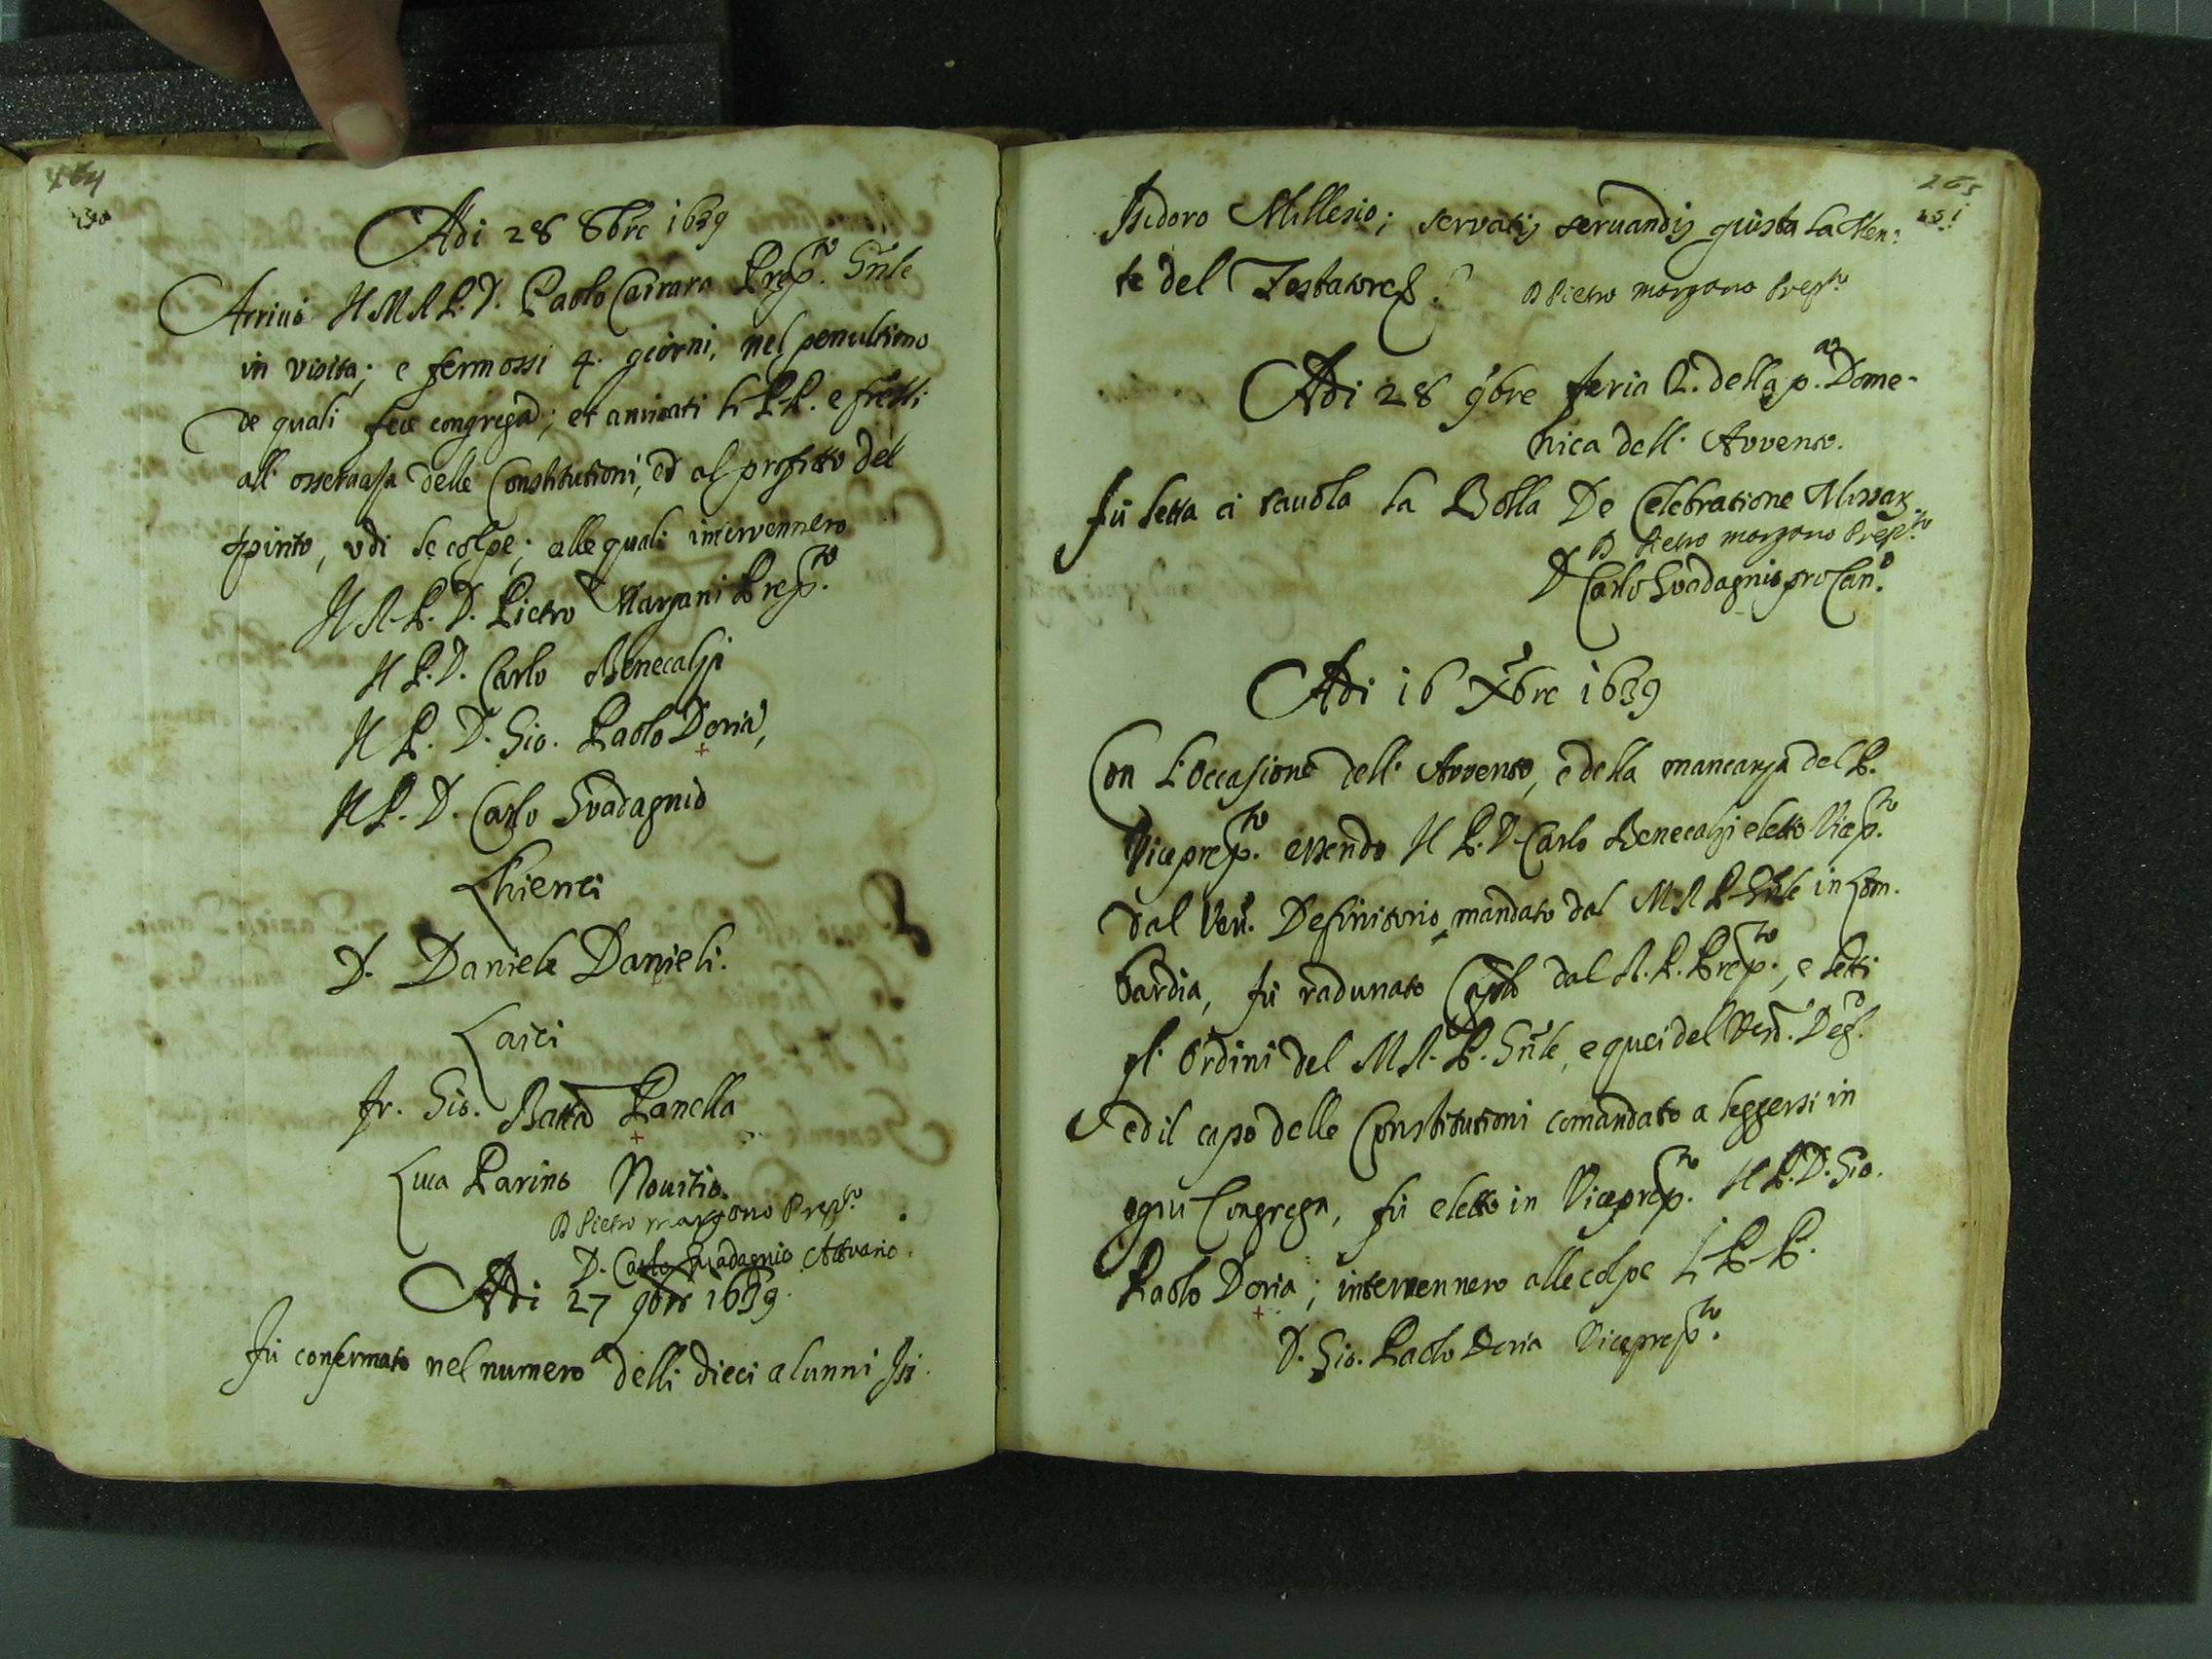 264
250
Adi 28 8bre 1639
Arriuò Il M.R.P.D. Paolo Carrara Prep.to Gñle
in visita; e fermossi 4. giorni, nel penultimo
de quali fece congrega; et animati li PP. e frẽlli
all' osseruaza delle Constitutioni, ed al profitto del
spirito, udì le colpe; alle quali intervennero
Il R.P.D. Pietro Margani Prep.to
Il P.D. Carlo Benecalzi
Il P.D. Gio. Paolo Doria,
Il P.D. Carlo Guadagnio
Chierici
D. Daniele Danieli.
Laici
fr. Gio. Batta Panella
Luca Parino Nouitio.
D Pietro margano Prep.to
D. Carlo Guadagnio Attuario.
Adi 27 9bre 1639.
Fù confermato nel numero delli dieci alunni Isi
265
251
Isidoro Millesio; servatis seruandis giusta la Men:
te del Testatore.
D Pietro margano Prep.to
Adi 28 9bre feria 2. della p.a Dome-
nica dell' Avvento.
fù letta à tauola la Bolla De Celebratione Missar.
D Pietro margano Prep.to
D Carlo Guadagnio pro Can.o
Adi 16 Xbre 1639
Con l'occasione dell' Avvento, e della mancanza del P.
Viceprep.to essendo Il P.D. Carlo Benecalzi eletto Vicep.to
dal Ven. Definitorio, mandato dal M.R.P. Gñle in Lom-
bardia, fù radunato Caplo dal R.P. Prep.to, e letti
gl' Ordini del M.R.P. Gñle, e quei del Ven. Def.o
ed il capo delle Constitutioni comandato a leggersi in
ogni Congrega, fù eletto in Viceprep.to Il P.D. Gio.
Paolo Doria; intervennero alle colpe li PP.
D. Gio. Paolo Doria Viceprep.to